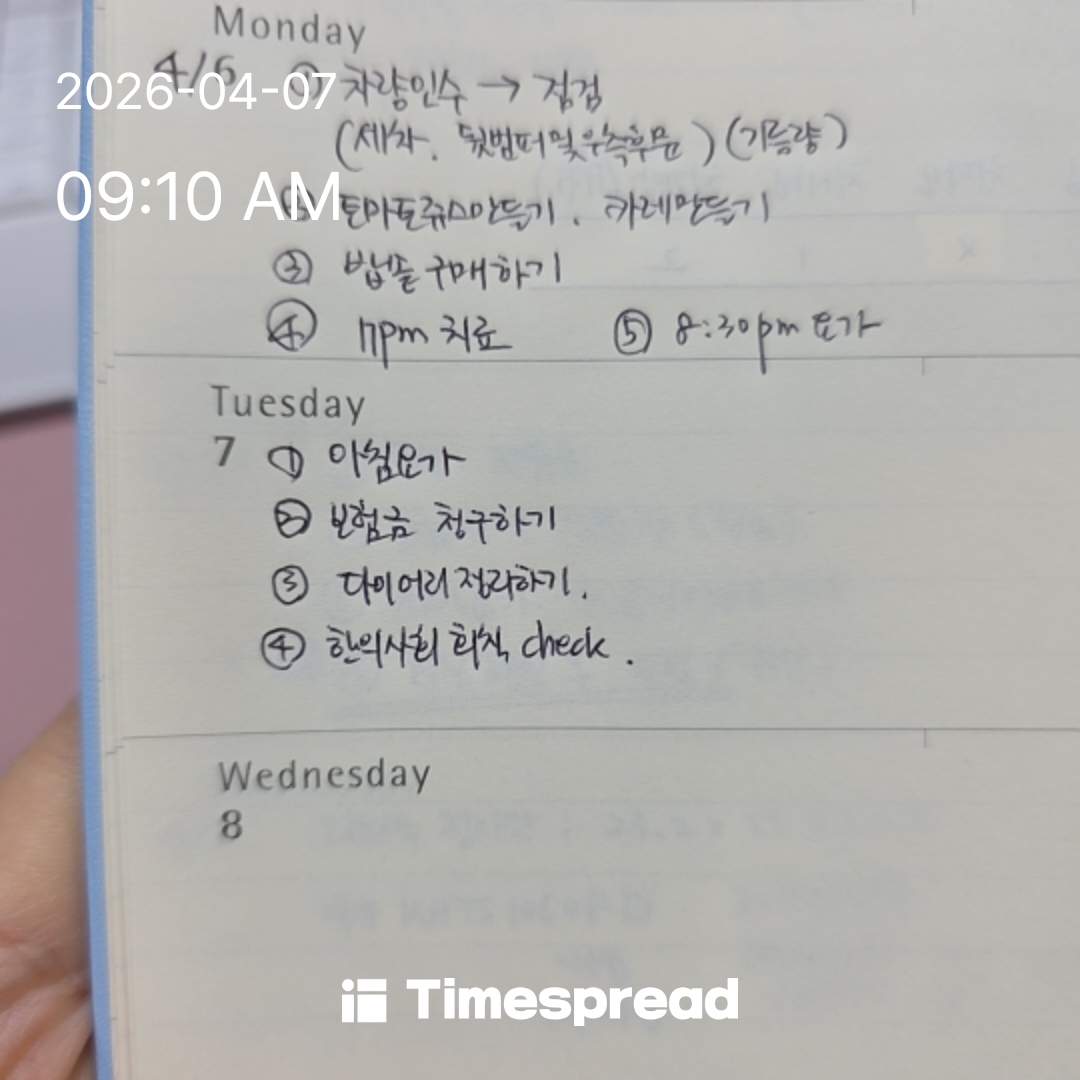 Monday
4/6 ① 차량인수 → 점검
2026-04-07
(세차. 뒷범퍼 및 우측후문) (기름량)
09:10 AM
토마토쥬스만들기. 카레만들기
③ 밥솥 구매하기
④ 7pm 치료 ⑤ 8:30pm 요가
Tuesday
7 ① 아침요가
② 보험금 청구하기
③ 다이어리 정리하기.
④ 한의사회 회칙 check.
Wednesday
8
Timespread